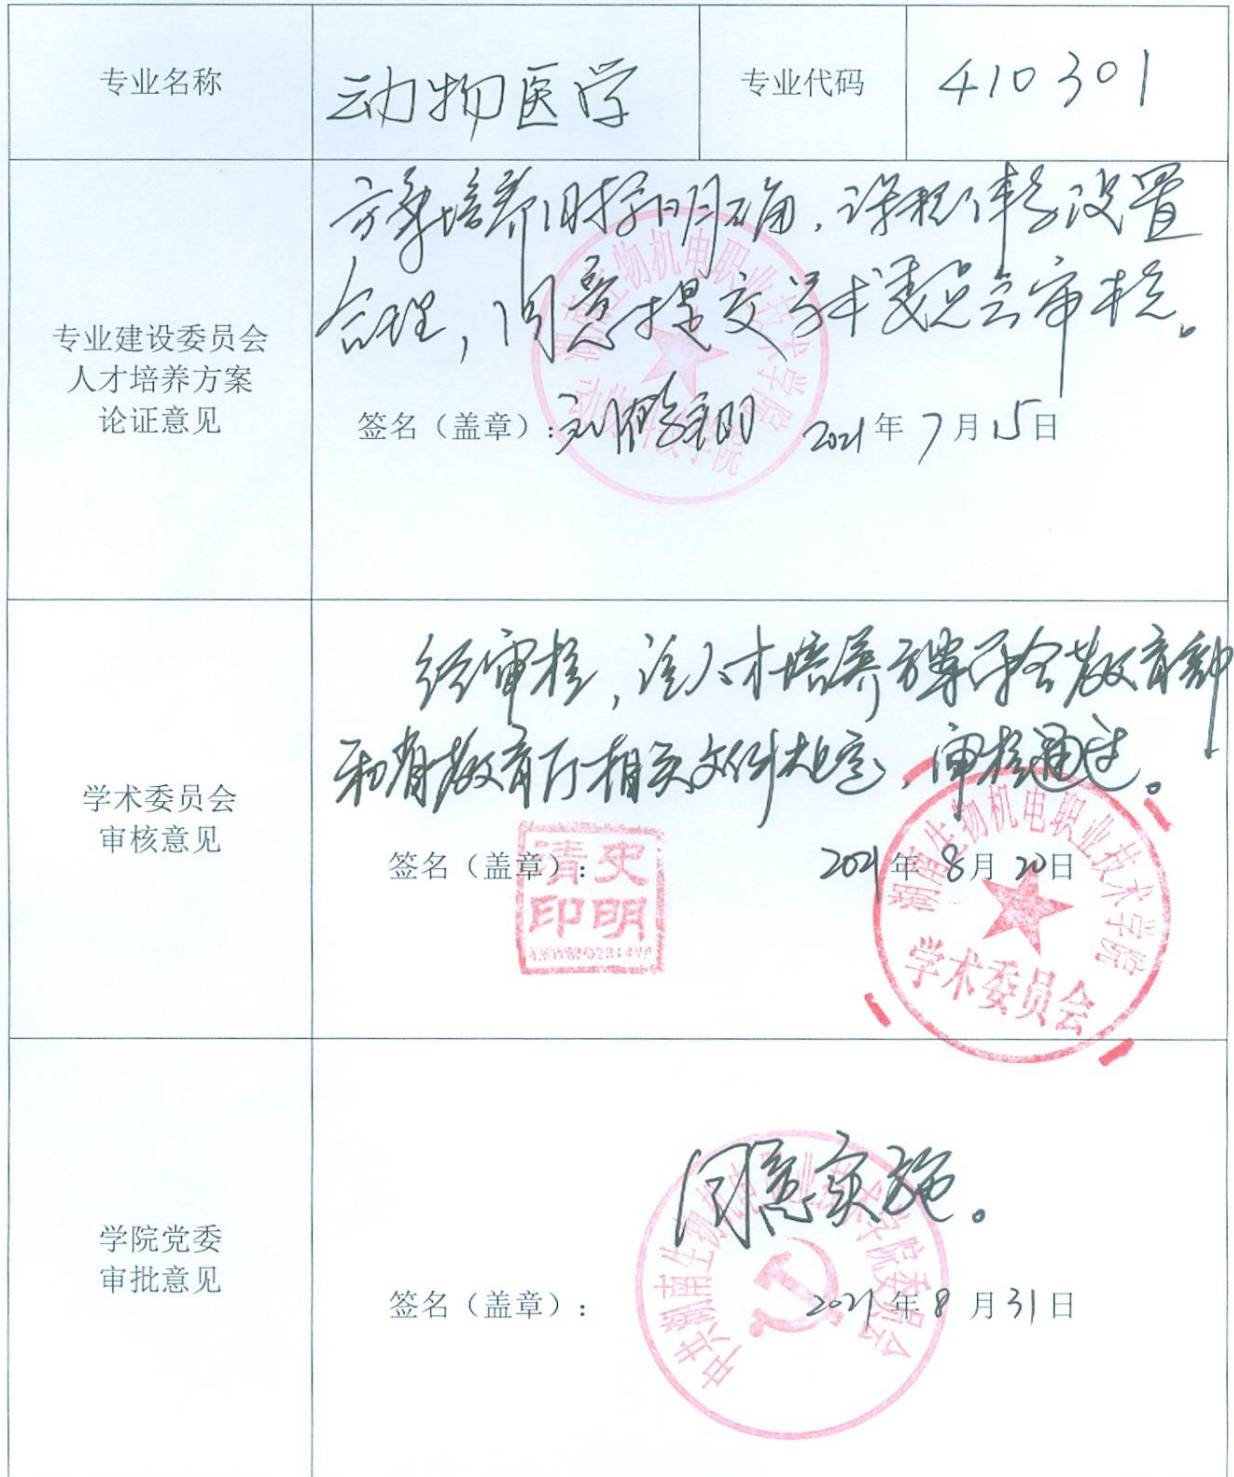 专业名称
动物医学
专业代码
410301
专业建设委员会
人才培养方案
论证意见
方案培养目标明确，课程体系设置
合理，同意提交学术委员会审核。
签名（盖章）：
2021年7月15日
湖南生物机电职业技术学院
学术委员会
审核意见
经审核，该人才培养方案符合教育部
和省教育厅相关文件规定，审核通过。
签名（盖章）：
2021年8月20日
史明清印
湖南生物机电职业技术学院
学术委员会
学院党委
审批意见
同意实施。
签名（盖章）：
2021年8月31日
中共湖南生物机电职业技术学院委员会